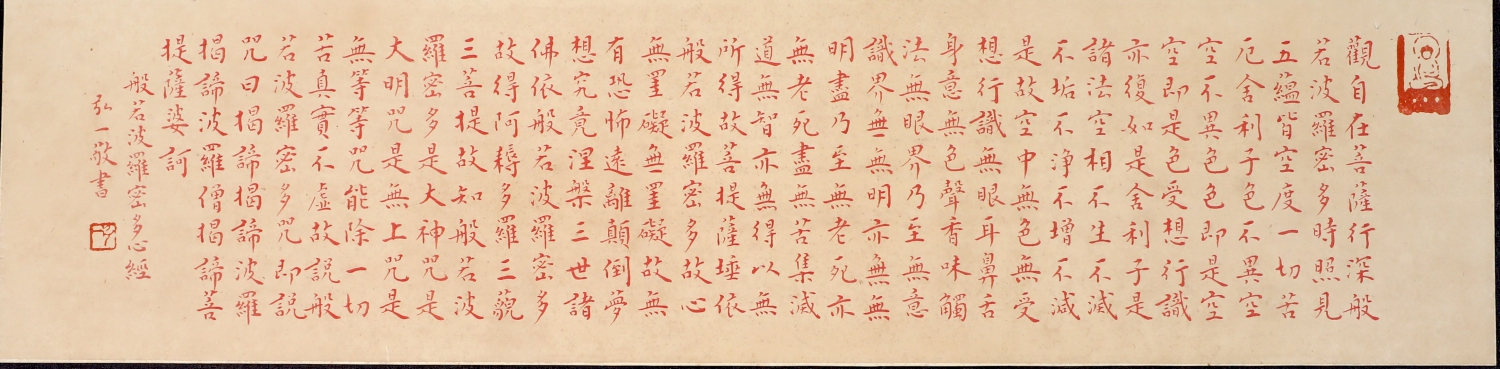 觀自在菩薩行深般
若波羅密多時照見
五蘊皆空度一切苦
厄舍利子色不異空
空不異色色即是空
空即是色受想行識
亦復如是舍利子是
諸法空相不生不滅
不垢不淨不增不減
是故空中無色無受
想行識無眼耳鼻舌
身意無色聲香味觸
法無眼界乃至無意
識界無無明亦無無
明盡乃至無老死亦
無老死盡無苦集滅
道無智亦無得以無
所得故菩提薩埵依
般若波羅密多故心
無罣礙無罣礙故無
有恐怖遠離顛倒夢
想究竟涅槃三世諸
佛依般若波羅密多
故得阿耨多羅三藐
三菩提故知般若波
羅密多是大神咒是
大明咒是無上咒是
無等等咒能除一切
苦真實不虛故說般
若波羅密多咒即說
咒曰揭諦揭諦波羅
揭諦波羅僧揭諦菩
提薩婆訶
般若波羅密多心經
弘一敬書